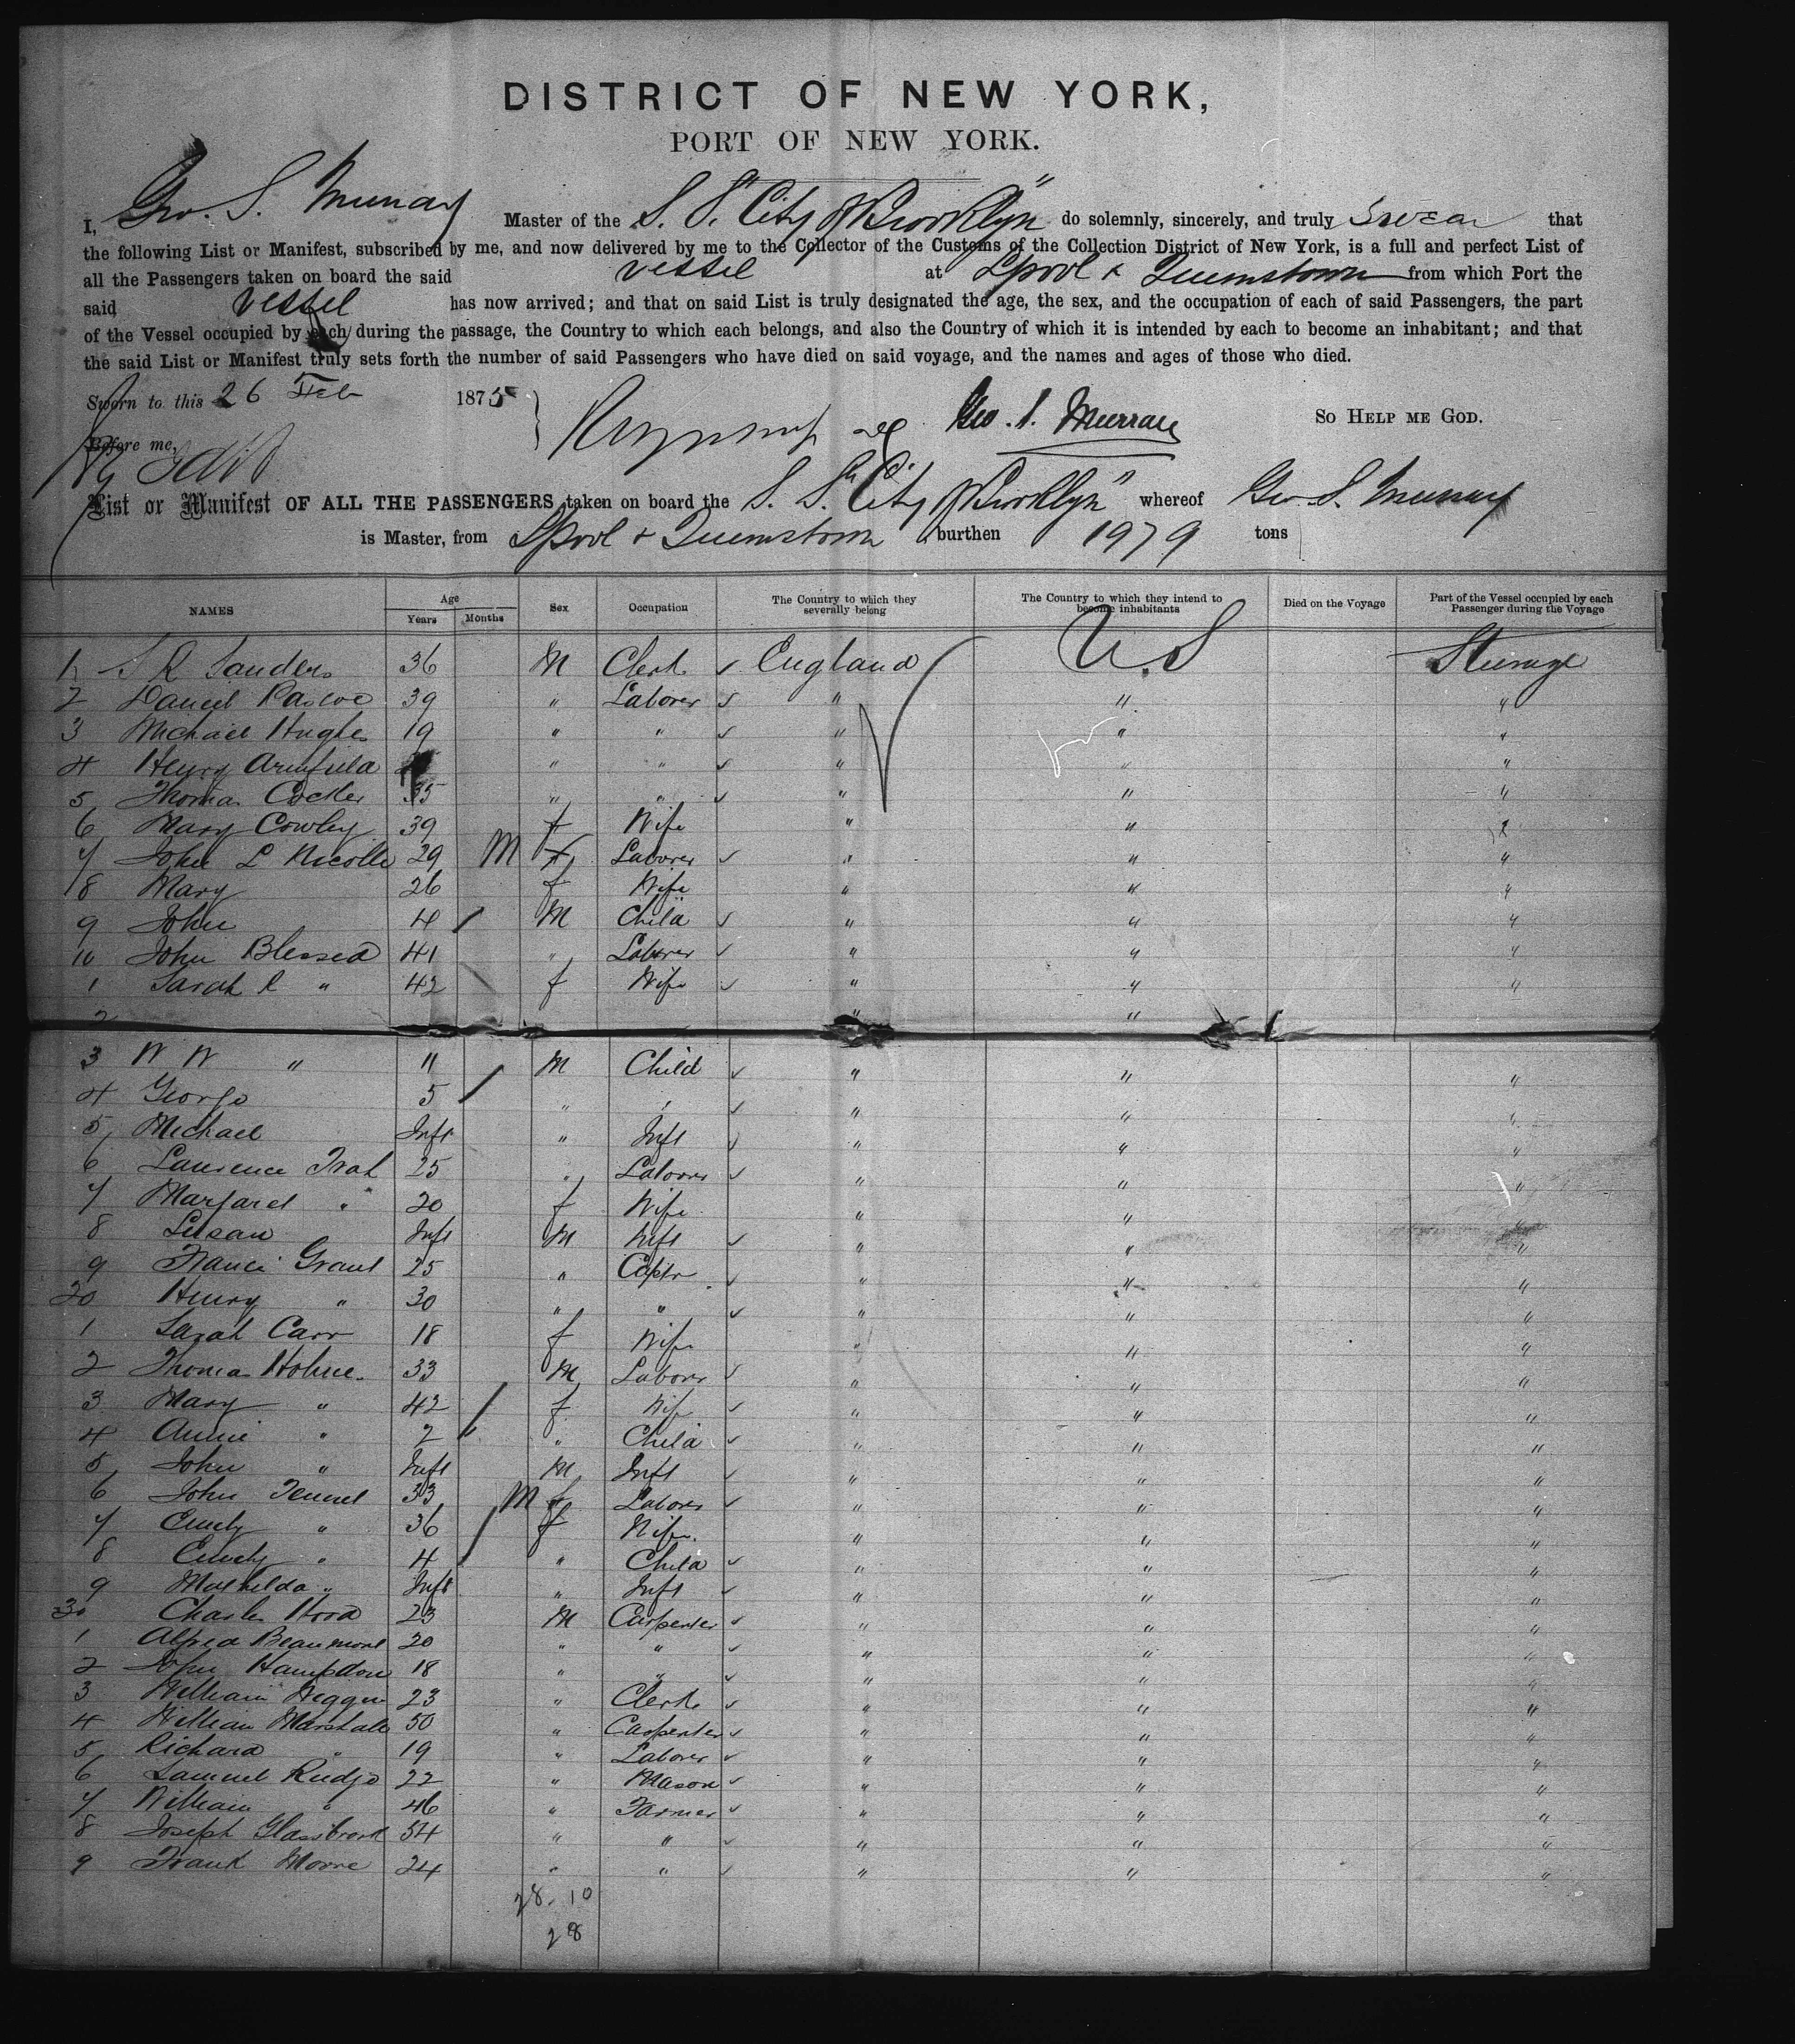 DISTRICT OF NEW YORK,
PORT OF NEW YORK.
I, Geo. S. Murray Master of the S. S. "City of Brooklyn" do solemnly, sincerely, and truly swear that
the following List or Manifest, subscribed by me, and now delivered by me to the Collector of the Customs of the Collection District of New York, is a full and perfect List of
all the Passengers taken on board the said vessel at Lpool & Queenstown from which Port the
said vessel has now arrived; and that on said List is truly designated the age, the sex, and the occupation of each of said Passengers, the part
of the Vessel occupied by each during the passage, the Country to which each belongs, and also the Country of which it is intended by each to become an inhabitant; and that
the said List or Manifest truly sets forth the number of said Passengers who have died on said voyage, and the names and ages of those who died.
Sworn to this 26 Feb 1875 Geo. S. Murray SO HELP ME GOD.
Before me,
List or Manifest OF ALL THE PASSENGERS taken on board the S. S. "City of Brooklyn" whereof Geo. S. Murray
is Master, from Lpool & Queenstown burthen 1979 tons
NAMES Age Years Months Sex Occupation The Country to which they severally belong The Country to which they intend to become inhabitants Died on the Voyage Part of the Vessel occupied by each Passenger during the Voyage
1 S R Sanders 36 M Clerk England U.S Steerage
2 Daniel Pascoe 39 " Laborer " " "
3 Michael Hughes 19 " " " " "
4 Henry Armfield " " " " "
5 Thomas Cocker 35 " " " " "
6 Mary Cowley 39 f Wife " " "
7 John L Nicolle 29 M Laborer " " "
8 Mary 26 f Wife " " "
9 John 4 M Child " " "
10 John Blessed 41 " Laborer " " "
1 Sarah R " 42 f Wife " " "
2 " "
3 W W " 11 M Child " " "
4 George 5 " " " " "
5 Michael Inft " Inft " " "
6 Laurence 25 " Laborer " " "
7 Margaret " 20 f Wife " " "
8 Susan Inft M Inft " " "
9 Francis Grant 25 " Captn " " "
20 Henry " 30 " " " " "
1 Sarah Carr 18 f Wife " " "
2 Thomas Holme 33 M Laborer " " "
3 Mary " 42 f Wife " " "
4 Annie " 2 " Child " " "
5 John " Inft M Inft " " "
6 John 33 M Laborer " " "
7 Emily " 36 f Wife " " "
8 Emily " 4 " Child " " "
9 Mathilda " Inft " Inft " " "
30 Charles Hood 23 M Carpenter " " "
1 Alfred Beaumont 20 " " " " "
2 John Hampdon 18 " " " " "
3 William 23 " Clerk " " "
4 William Marshall 50 " Carpenter " " "
5 Richard " 19 " Laborer " " "
6 Samuel Rudge 22 " Mason " " "
7 William " 46 " Farmer " " "
8 Joseph 54 " " " " "
9 Frank Moore 24 " " " " "
28. 10
28